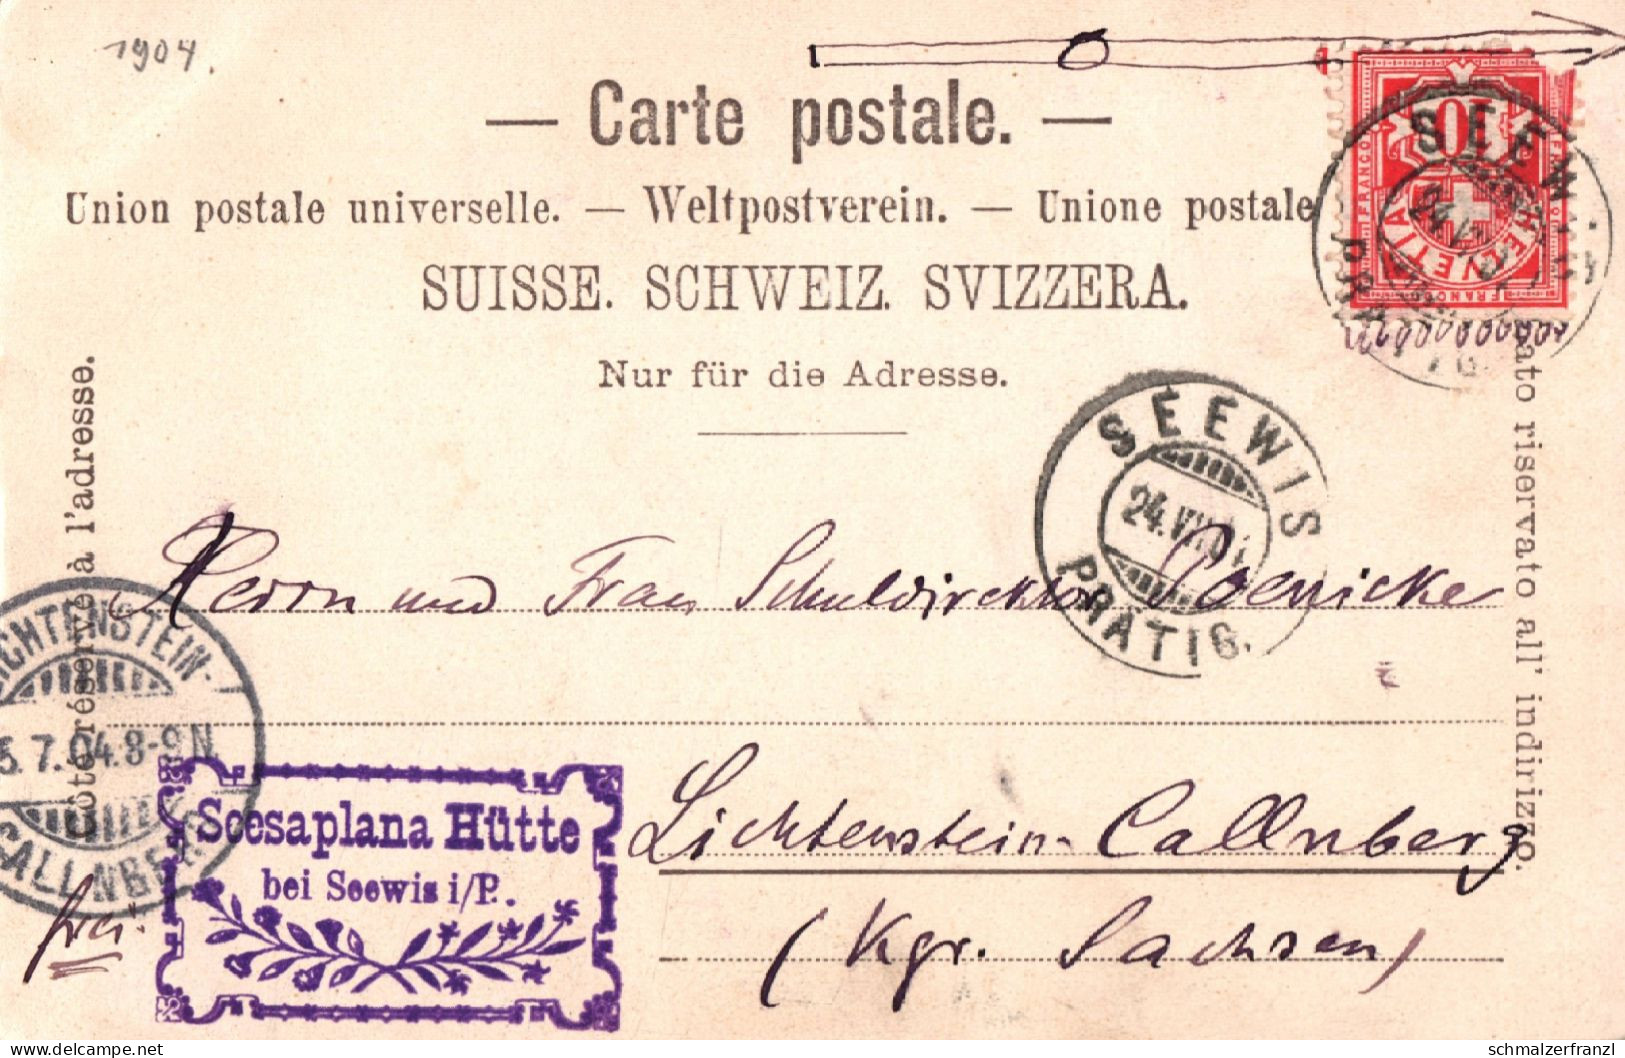 1904.
— Carte postale. —
Union postale universelle. — Weltpostverein. — Unione postale
SUISSE. SCHWEIZ. SVIZZERA.
Nur für die Adresse.
Côté réservé à l'adresse.
ato riservato all' indirizzo.
10
FRANCO
HELVETIA
FRANCO
SEEWIS
24.VII
PRÄTIG.
SEEWIS
24.VII.04
PRÄTIG.
Herrn und Frau Schuldirektor Poenicke
Lichtenstein-Callnberg
(Kgr. Sachsen)
frei.
ICHTENSTEIN-
5.7.04.8-9N
CALLNBERG
Scesaplana Hütte
bei Seewis i/P.
delcampe.net
schmalzerfranzl